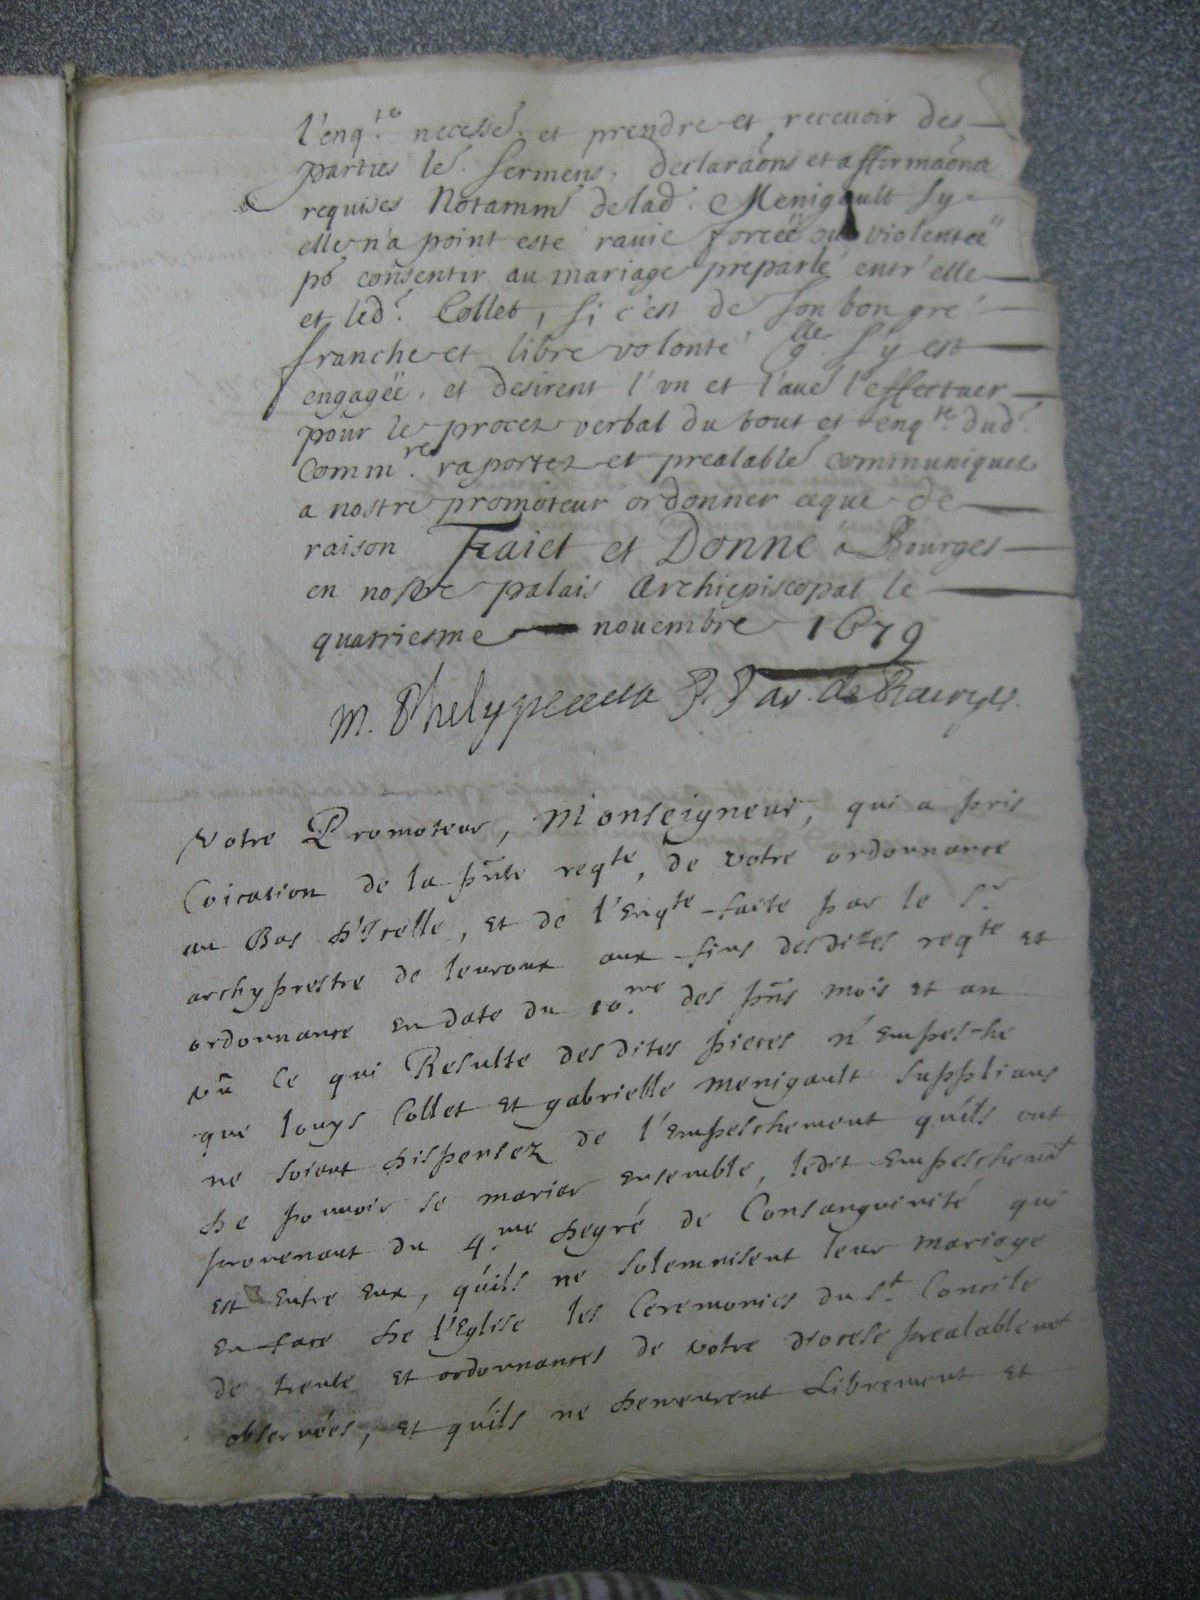 l'enq.te necessre. et prendre et recevoir des
parties les. sermens, declaraōns et affirmaōns
requises Notamm̄t de lad. Menigault sy
elle n'a point esté ravie forcéë ou violentéë
pō consentir au mariage préparlé entr'elle
et led.t Collet, si c'est de son bon gré
franche et libre volonté q.lle s'y est
engagéë, et desirent l'vn et l'aue l'effectuer
pour le procez verbal du tout et enq.te dud.t
Comm.re raportez et prealable communiquez
a nostre promoteur ordonner ceque de
raison Faict et Donné a Bourges
en nostre palais Archiepiscopal le
quatriesme novembre 1679
M. Phelypeaux P. P. ar. de Bourges.
Votre Promoteur, Monseigneur, qui a pris
Coication de la pn̄te reqte, de votre ordonnance
au Bas d'Icelle, et de l'Enqte faite par le Sr
archyprestre de levroux aux fins desdites reqte et
ordonnance en date du 10.me des pn̄s mois et an
vū ce qui Resulte desdites pieces n'Empesche
que louys Collet et gabrielle Menigault supplians
ne soient dispensez de l'Empeschement qu'ils ont
de pouvoir se marier ensemble, ledit Empeschemt
provenant du 4.me degré de Consanguinité qui
est entre eux, qu'ils ne solemnisent leur mariage
en face de l'Eglise les Ceremonies du St. Concile
de trente et ordonnances de votre diocese prealablemt
observées, et qu'ils ne demeurent Librement et